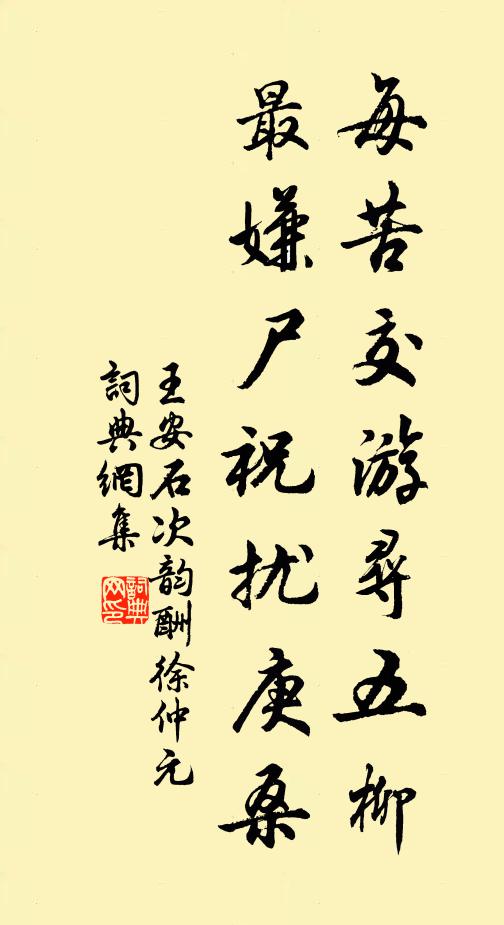 每苦交游尋五柳
最嫌尸祝扰庚桑
王安石次韵酬徐仲元
詞典網集
詞典网印